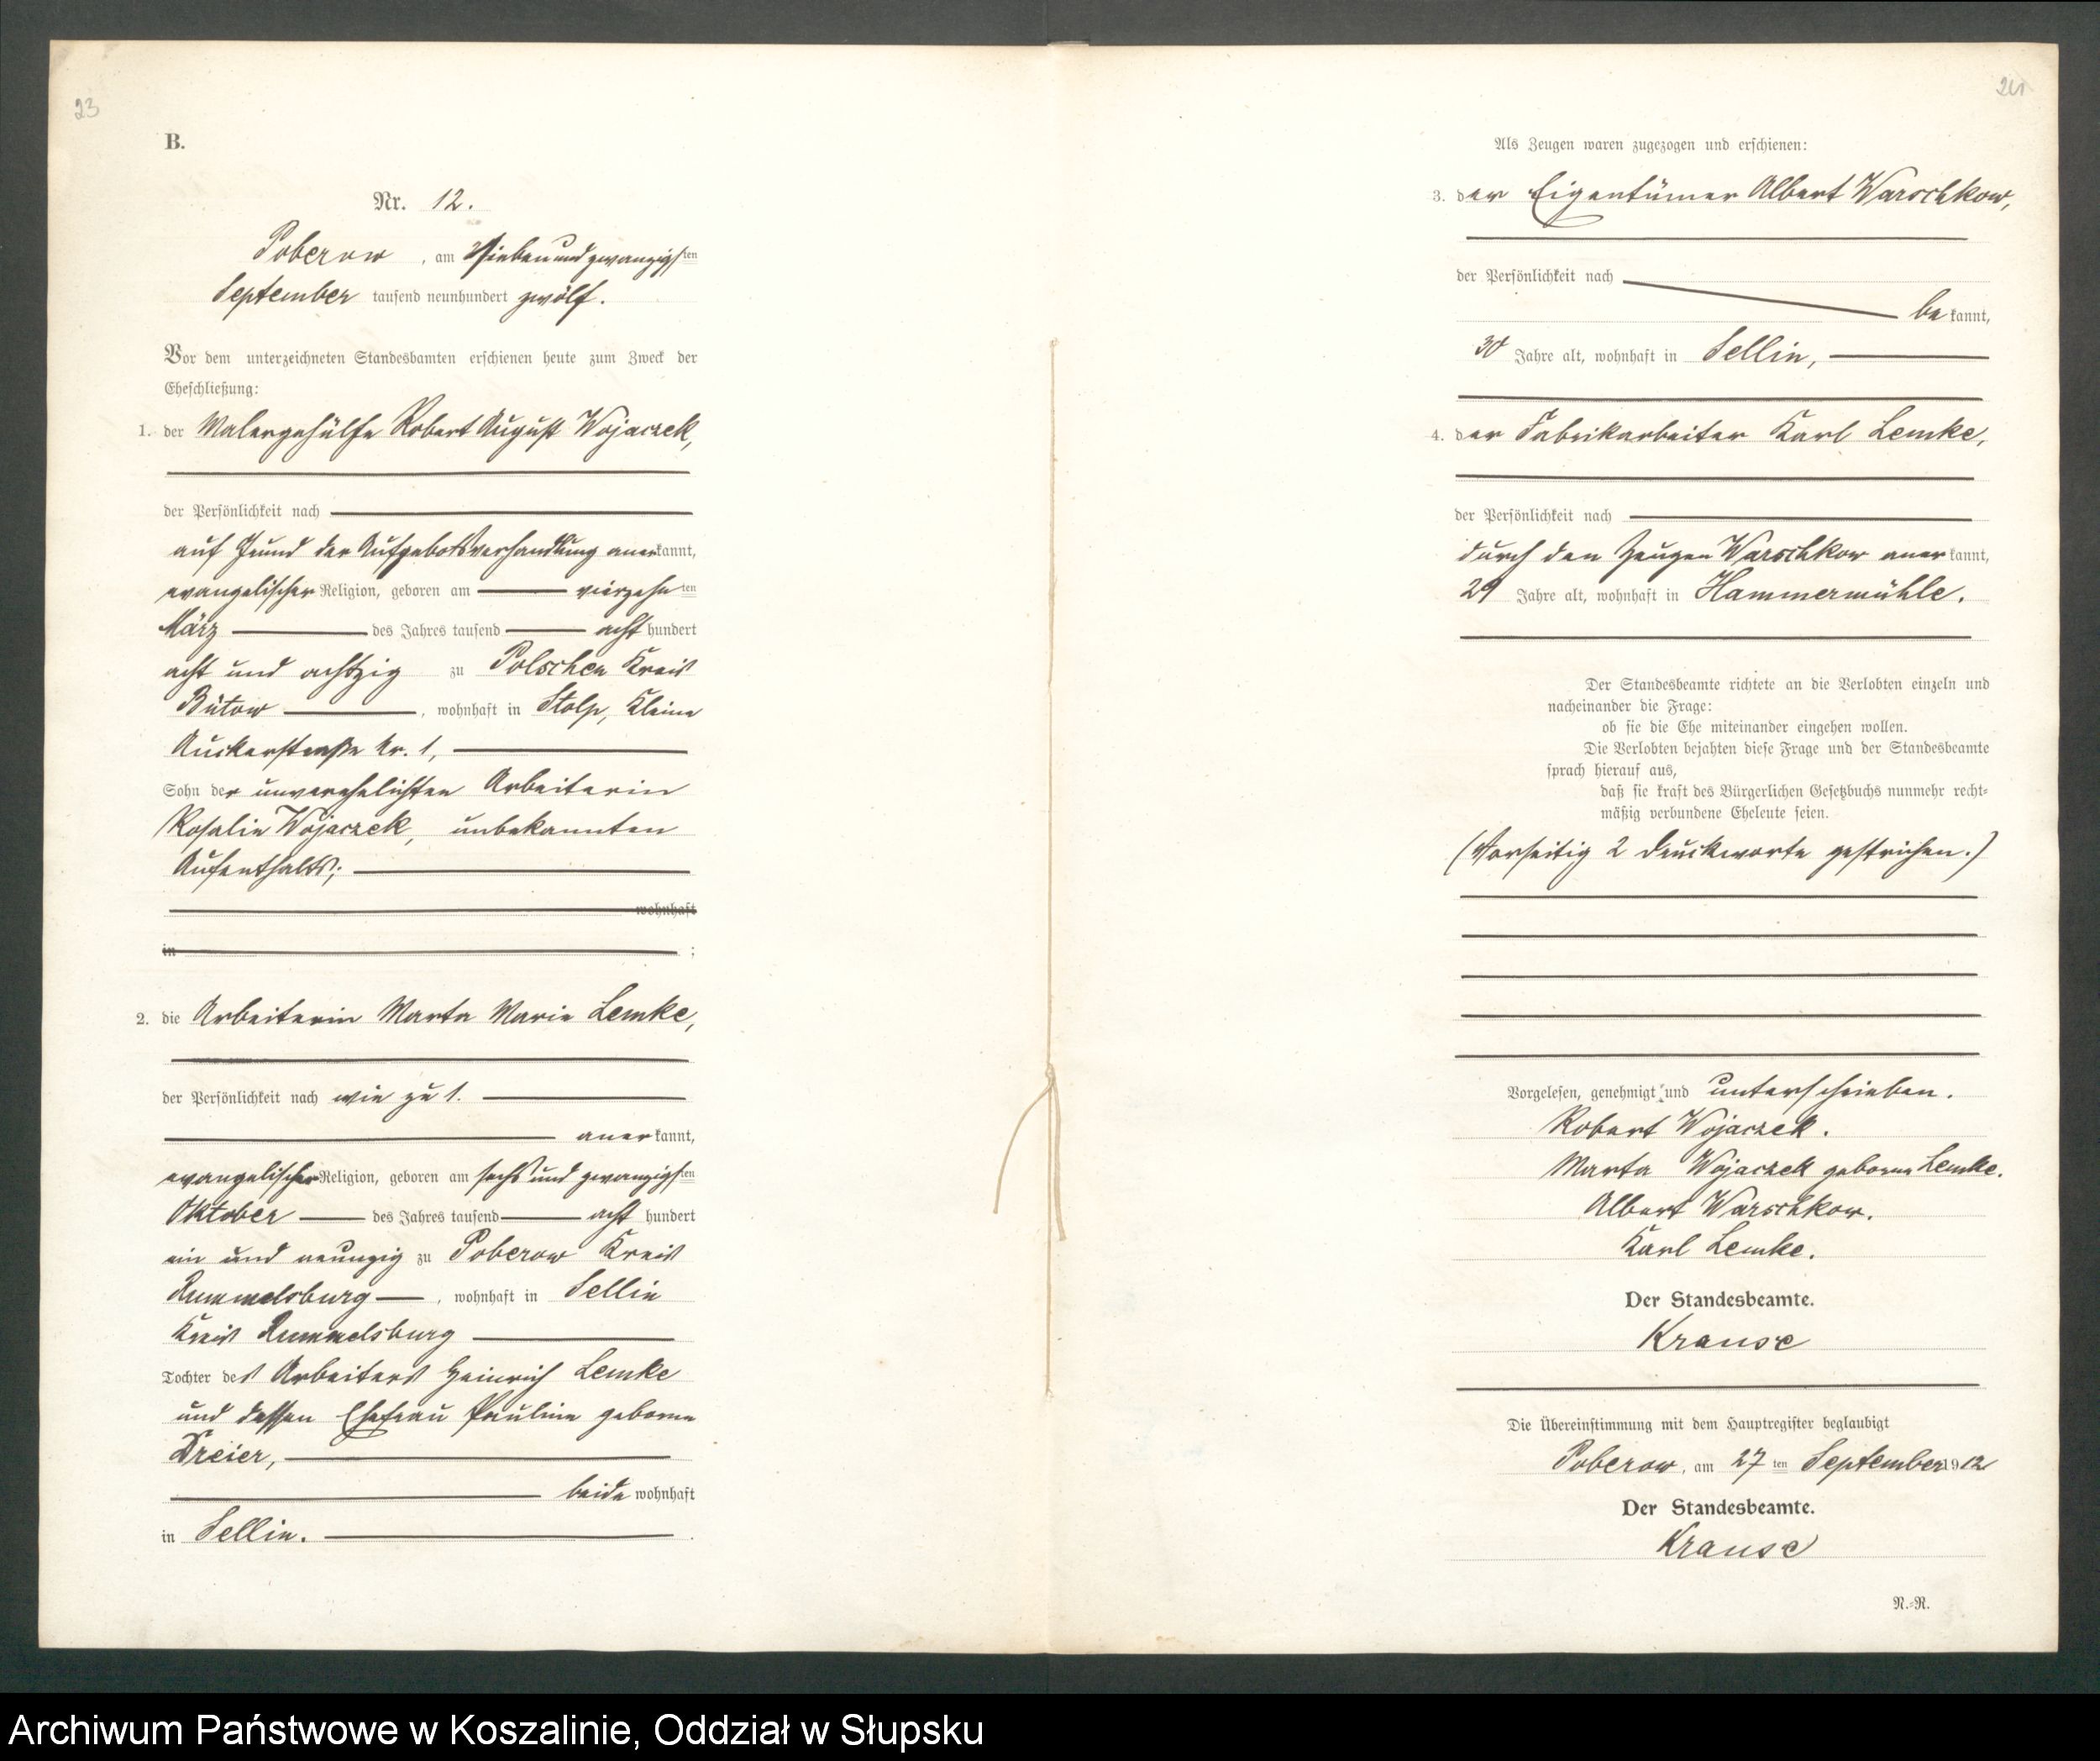 23
B.
Nr. 12.
Poberow, am Siebenundzwanzigsten
September tausend neunhundert zwölf.
Vor dem unterzeichneten Standesbamten erschienen heute zum Zweck der
Eheschließung:
1. der Malergehülfe Robert August Wojaczek,
der Persönlichkeit nach
auf Grund der Aufgebotsverhandlung anerkannt,
evangelischer Religion, geboren am vierzehnten
März des Jahres tausend acht hundert
acht und achtzig zu Polschen Kreis
Bütow, wohnhaft in Stolp, Kleine
Auckerstraße Nr. 1,
Sohn der unverehelichten Arbeiterin
Rosalie Wojaczek, unbekannten
Aufenthalts;
wohnhaft
in ;
2. die Arbeiterin Marta Marie Lemke,
der Persönlichkeit nach wie zu 1.
anerkannt,
evangelischer Religion, geboren am sechs und zwanzigsten
Oktober des Jahres tausend acht hundert
ein und neunzig zu Poberow Kreis
Rummelsburg, wohnhaft in Sellin
Kreis Rummelsburg
Tochter des Arbeiters Heinrich Lemke
und dessen Ehefrau Pauline geborne
Dreier,
beide wohnhaft
in Sellin.
24
Als Zeugen waren zugezogen und erschienen:
3. der Eigentümer Albert Warschkow,
der Persönlichkeit nach
bekannt,
30 Jahre alt, wohnhaft in Sellin,
4. der Fabrikarbeiter Karl Lemke,
der Persönlichkeit nach
durch den Zeugen Warschkow anerkannt,
29 Jahre alt, wohnhaft in Hammermühle.
Der Standesbeamte richtete an die Verlobten einzeln und
nacheinander die Frage:
ob sie die Ehe miteinander eingehen wollen.
Die Verlobten bejahten diese Frage und der Standesbeamte
sprach hierauf aus,
daß sie kraft des Bürgerlichen Gesetzbuchs nunmehr recht-
mäßig verbundene Eheleute seien.
(Vorseitig 2 Druckworte gestrichen.)
Vorgelesen, genehmigt und unterschrieben.
Robert Wojaczek.
Marta Wojaczek geborne Lemke.
Albert Warschkow.
Karl Lemke.
Der Standesbeamte.
Krause
Die Übereinstimmung mit dem Hauptregister beglaubigt
Poberow, am 27ten September 1912
Der Standesbeamte.
Krause
N.-R.
Archiwum Państwowe w Koszalinie, Oddział w Słupsku